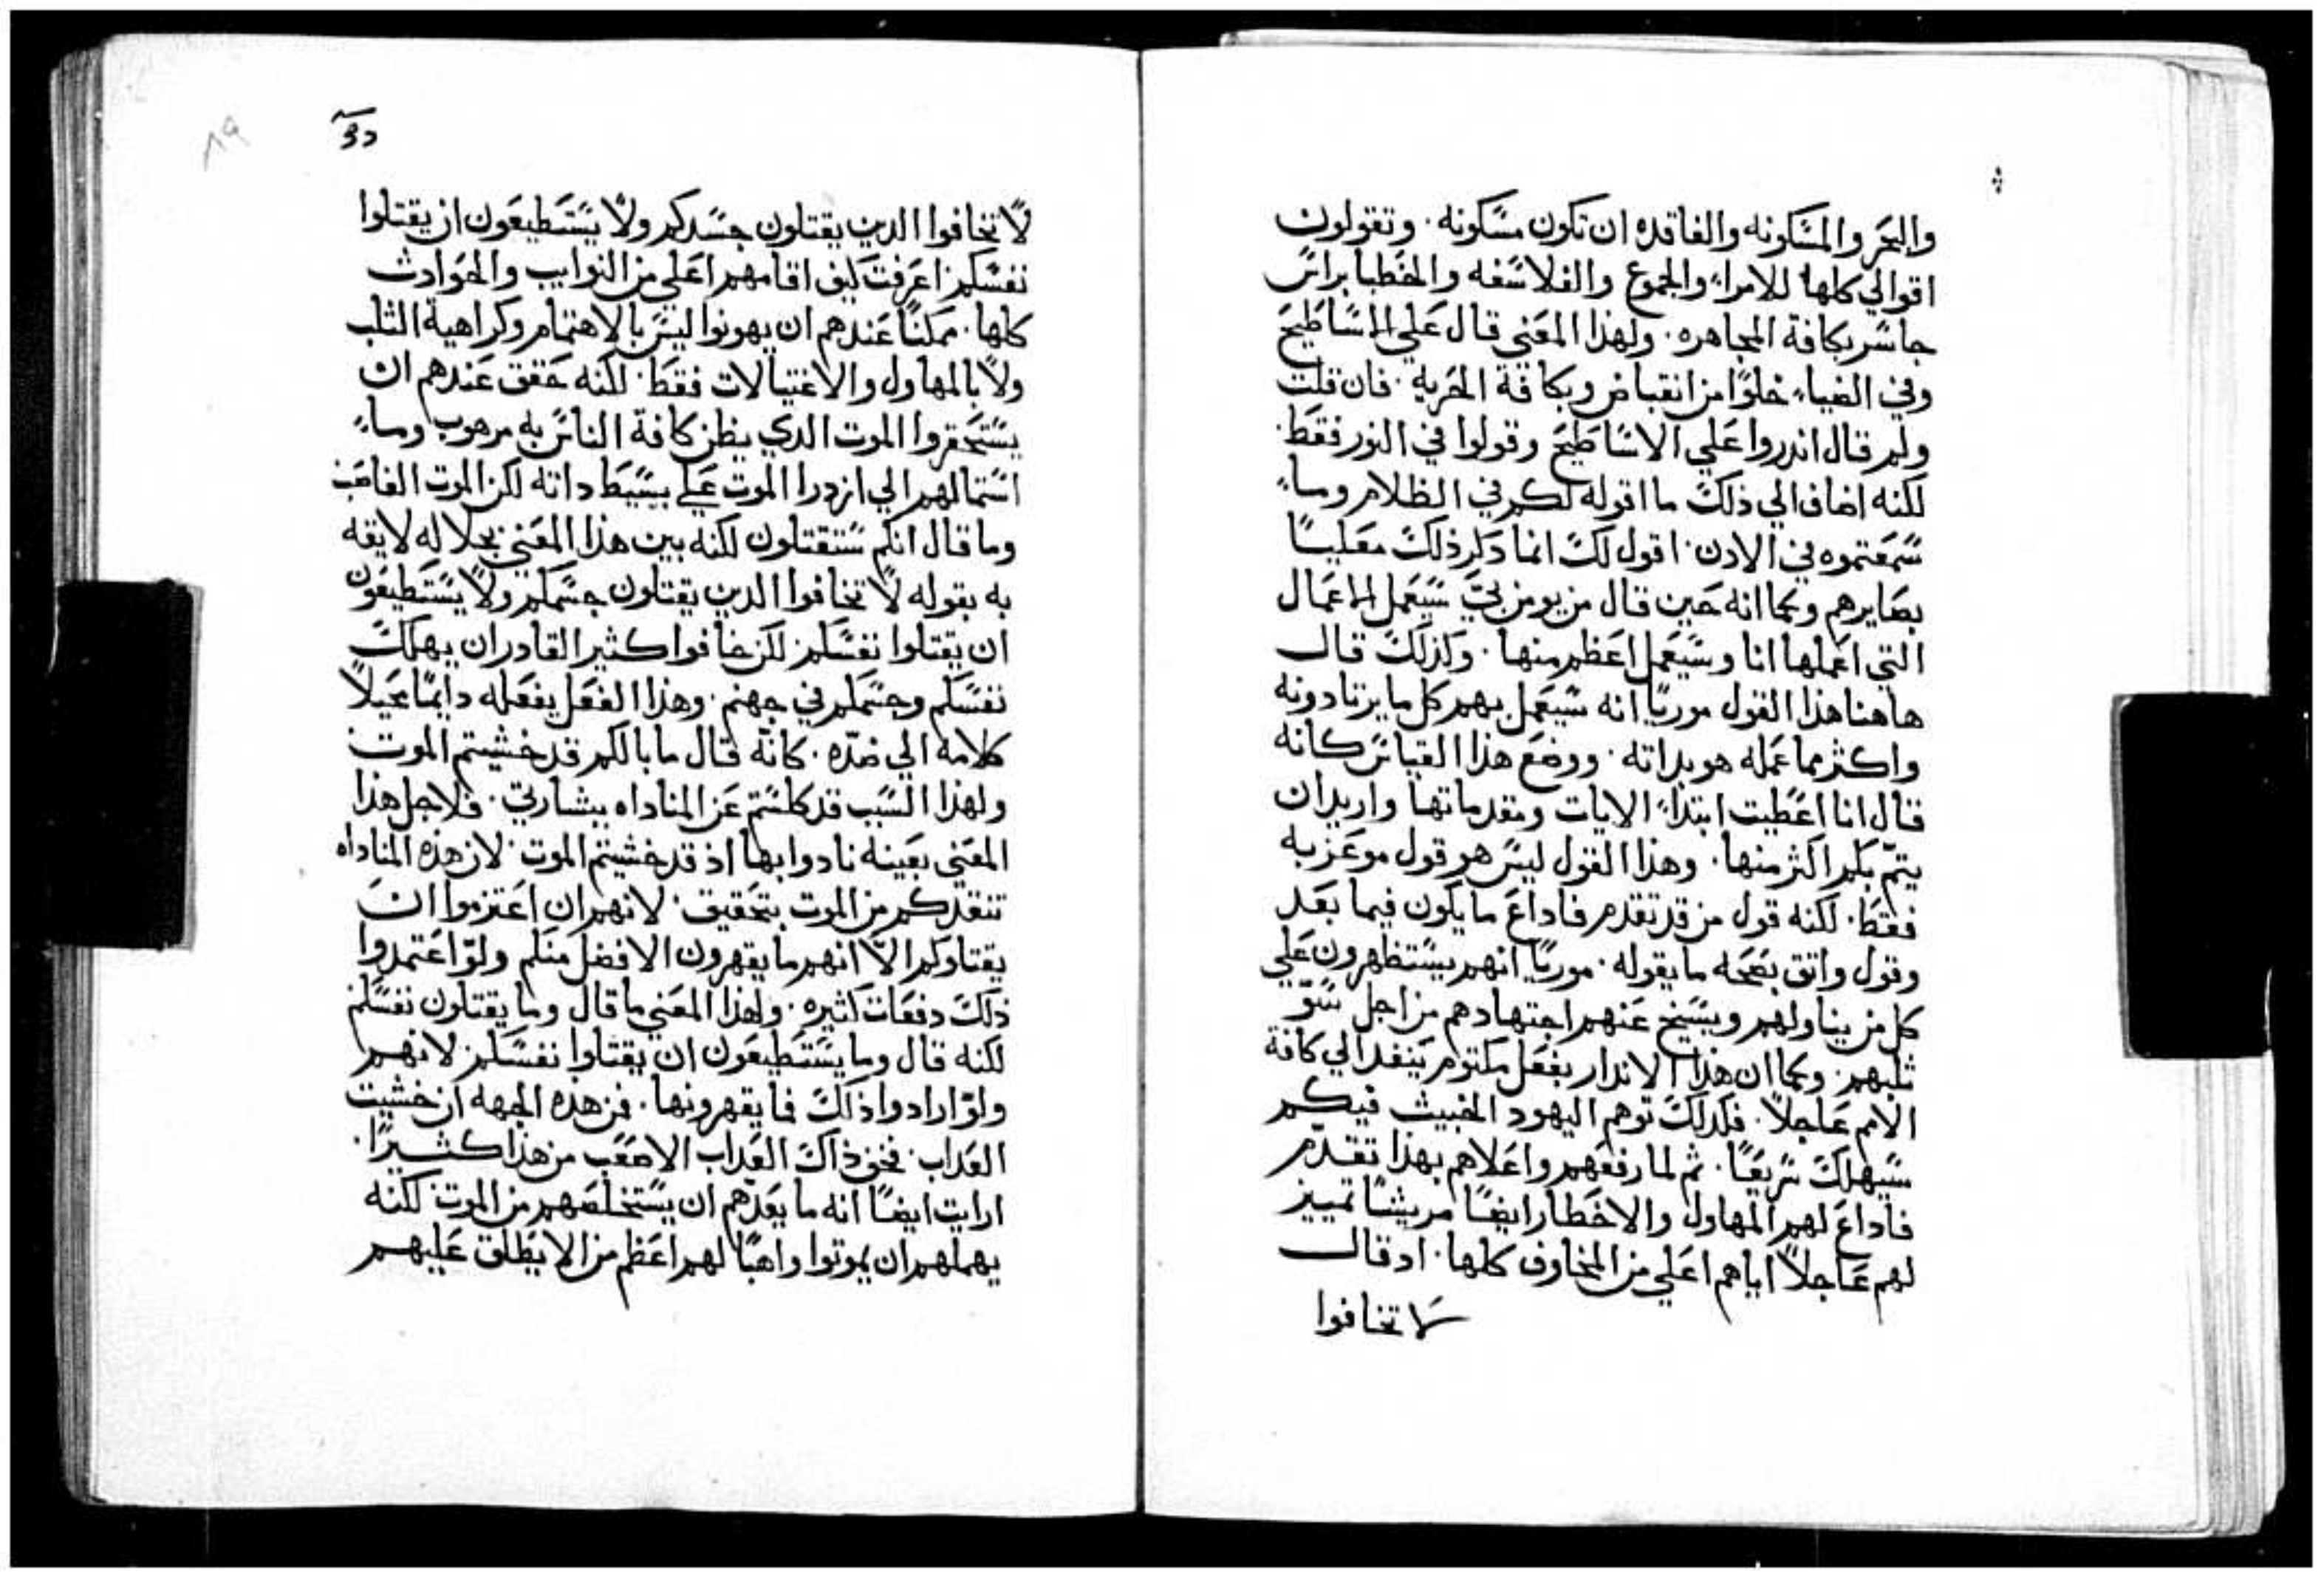 والبحر والمسكونه والفاقده ان تكون مسكونه. وتقولون
اقوالي كلها للامراء والجموع والفلاسفه والخطبا براس
جاسر بكافة المجاهره. ولهذا المعني قال علي الاساطيح
وفي الضياء خلوًا من انقباض وبكافة الحريه. فان قلت
ولم قال اندروا علي الاساطيح وقولوا في النور فقط.
لكنه اضاف الي ذلك ما اقوله لكم في الظلام وما
سمعتموه في الادن. اقول لك انما دكر ذلك معليًا
بصايرهم وكما انه حين قال من يومن بي سيعمل الاعمال
التي اعملها انا وسيعمل اعظم منها. وكذلك قال
هاهنا هذا القول موريًا انه سيعمل بهم كل ما يرتادونه
واكثر مما عمله هو بداته. ووضع هذا القياس كانه
قال انا اعطيت ابتداء الايات ومقدماتها واريد ان
يتمّ بكم اكثر منها. وهذا القول ليس هو قول موعز به
فقط. لكنه قول من قد تقدم فاداع ما يكون فيما بعد
وقول واتق بصحه ما يقوله. موريًا انهم يستظهرون علي
كل من يناولهم ويسنخ عنهم اجتهادهم من اجل سوّ
ثلبهم. وكما ان هذا الاندار بفعل مكتوم ينفد الي كافة
الامم عاجلاً. فكدلك توهم اليهود الخبيث فيكم
سيهلك سريعًا. ثم لما رفعهم واعلاهم بهذا تقدّم
فاداع لهم المهاول والاخطار ايضًا مريشًا تمييز
لهم عاجلاً اياهم اعلي من المخاوف كلها. اد قال
لا تخافوا
دو
٨٩
لا تخافوا الدين يقتلون جسدكم ولا يستطيعون ان يقتلوا
نفسكم اعرفت كيف اقامهم اعلي من النوايب والحوادث
كلها. ممكنًا عندهم ان يهونوا ليس بالاهتمام وكراهية الثلب
ولا بالمهاول والاغتيالات فقط. لكنه حقق عندهم ان
يستحقروا الموت الدي يظن كافة الناس به مرهوب وما
استمالهم الي ازدرا الموت علي بسيط داته لكن الموت الغاصب
وما قال انكم ستقتلون لكنه بين هذا المعني بجلاله لايقه
به بقوله لا تخافوا الدين يقتلون جسمكم ولا يستطيعون
ان يقتلوا نفسكم لكن خافوا كثيرا القادر ان يهلك
نفسكم وجسمكم في جهنم. وهذا الفعل يفعله دايمًا محيلاً
كلامه الي ضدّه. كانّه قال ما بالكم قد خشيتم الموت
ولهذا السبب قد كلستم عن المناداه ببشارتي. فلاجل هذا
المعني بعينه نادوا بها اذ قد خشيتم الموت. لان هذه المناداه
تنقدكم من الموت بتحقيق. لانهم ان اعتزموا ان
يقتلوكم الاّ انهم ما يقهرون الافضل منكم ولوّ اعتمدوا
ذلك دفعات كثيره. ولهذا المعني ما قال وما يقتلون نفسكم
لكنه قال وما يستطيعون ان يقتلوا نفسكم لانهم
ولوّ ارادوا ذلك فما يقهرونها. فمن هذه الجهه ان خشيت
العداب. فخف ذاك العداب الاصعب من هذا كثيرًا.
ارايت ايضًا انه ما يعدّهم ان يستخلصهم من الموت لكنه
يهملهم ان يموتوا واهبًا لهم اعظم من الا يطلق عليهم